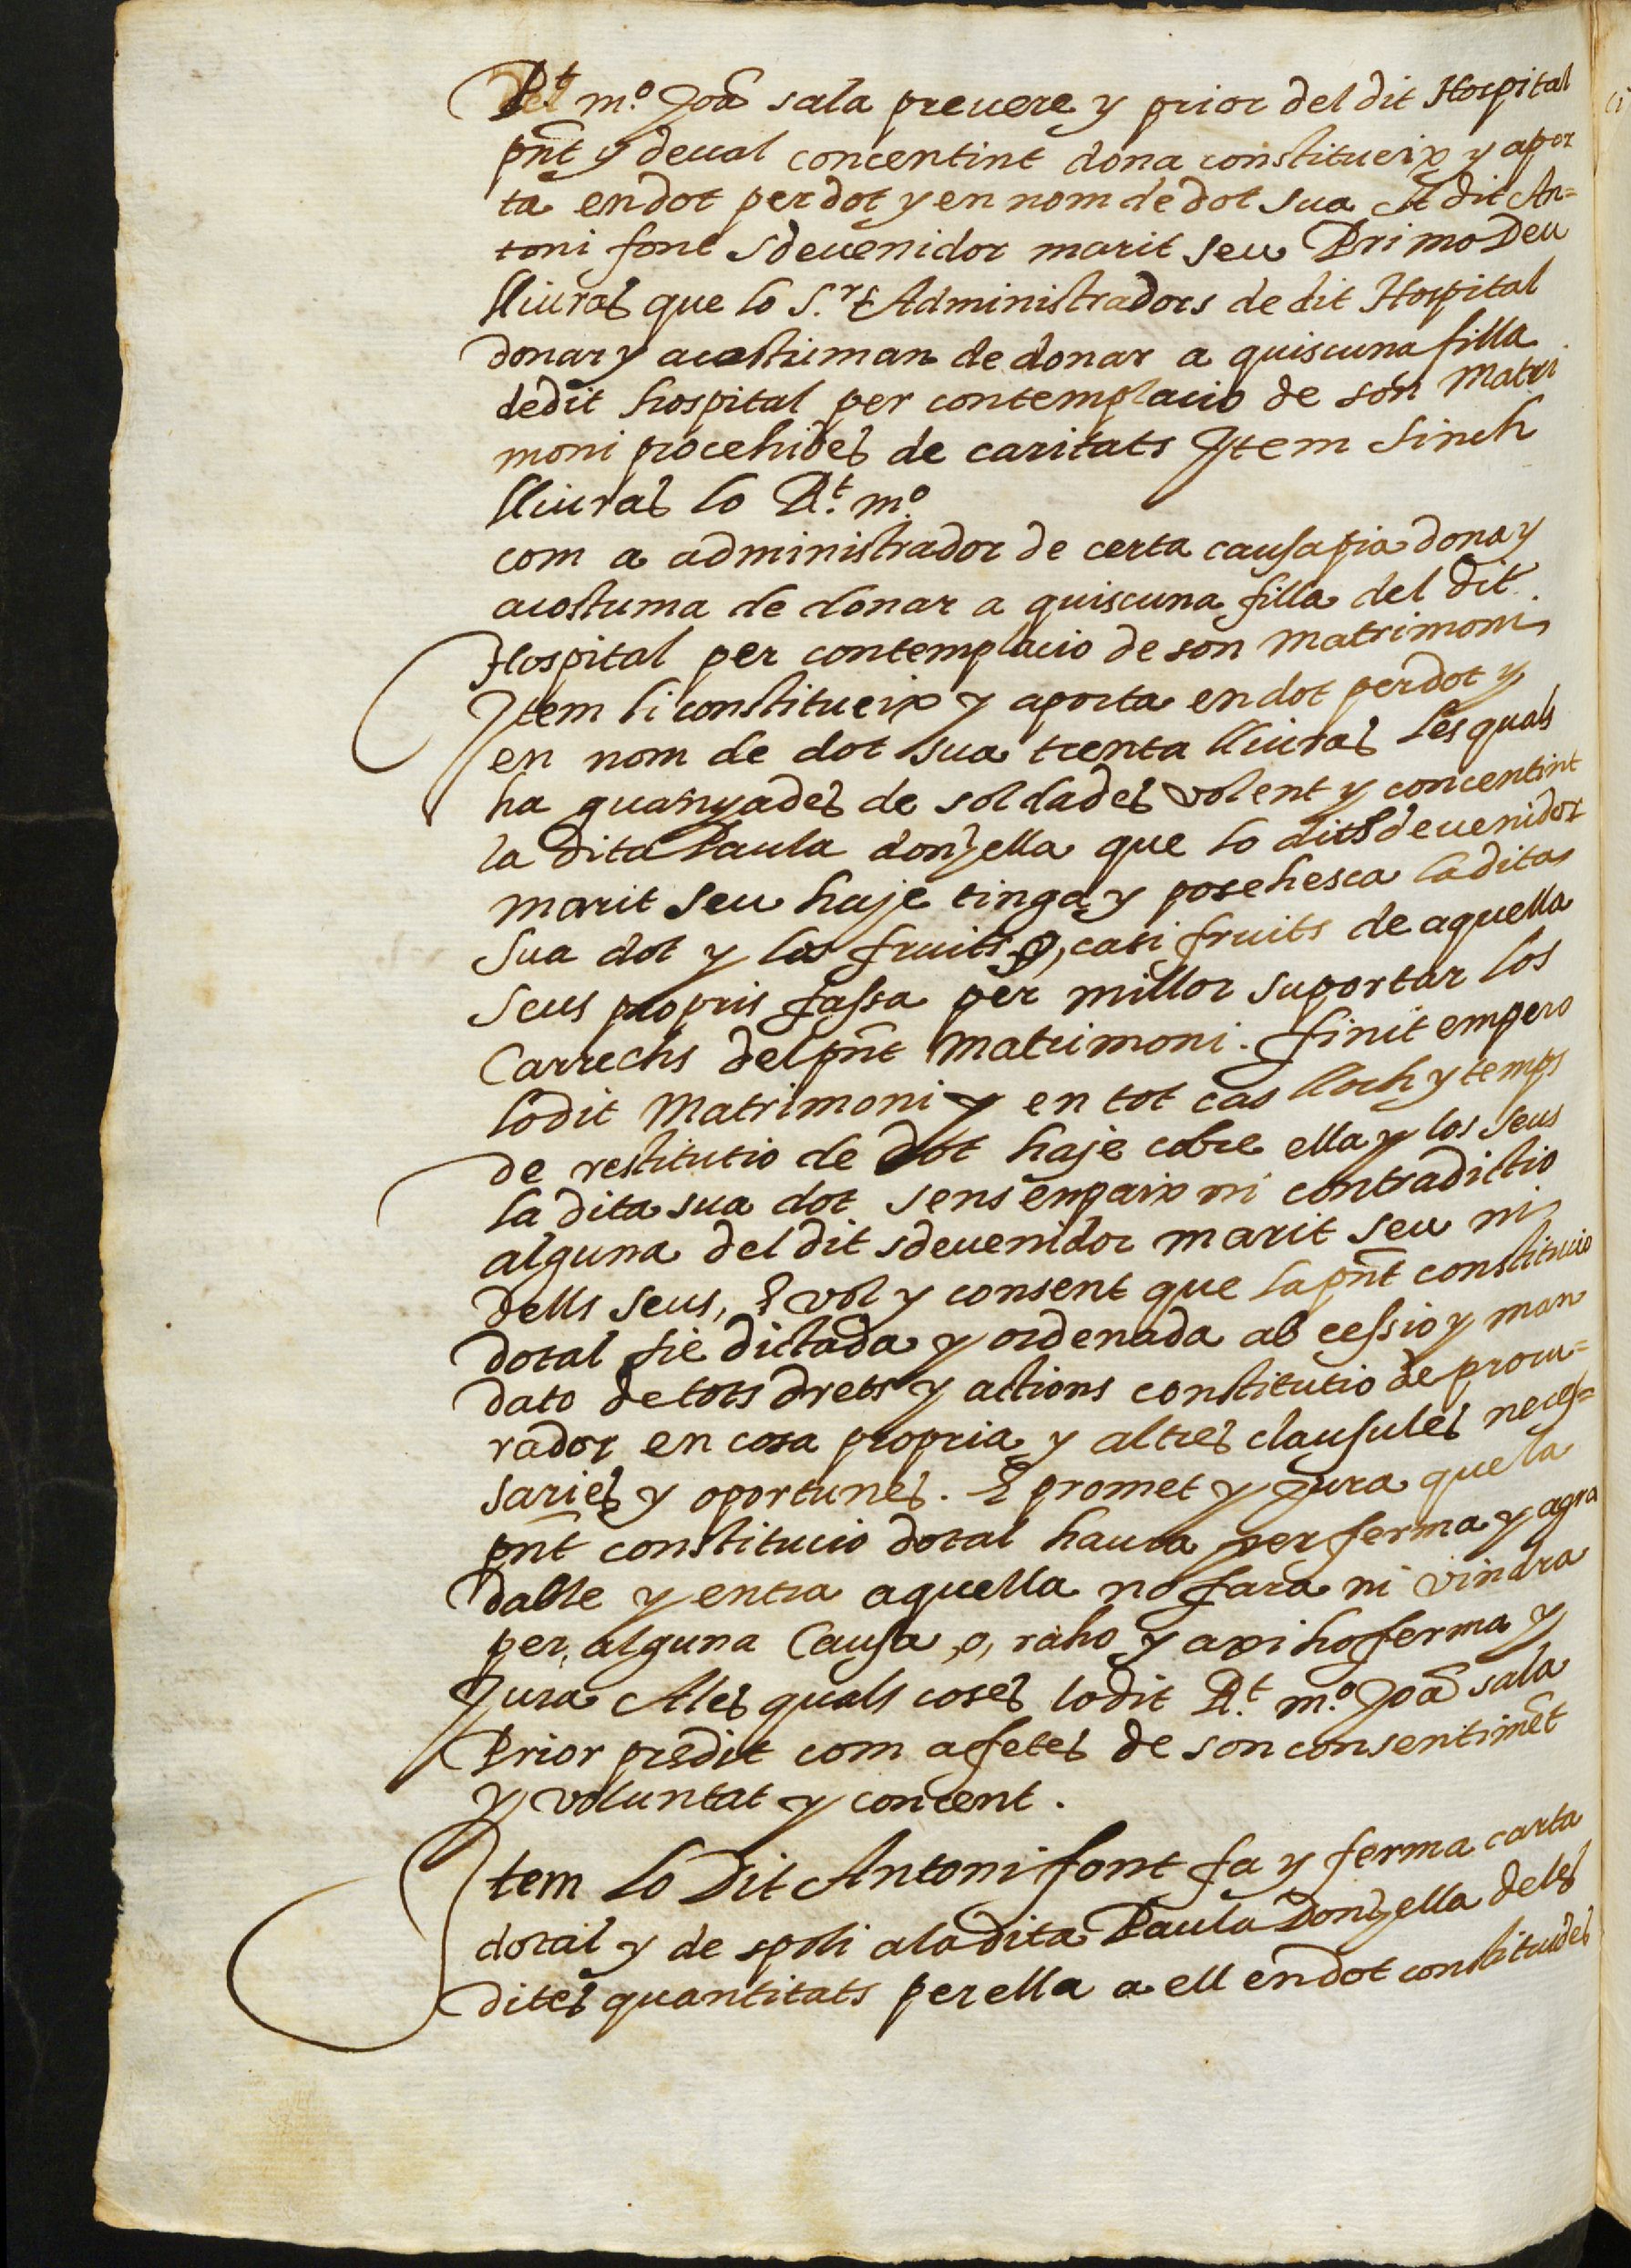 Rt. mº. Joã sala preuere y prior del dit Hospital
pñt y deual concentint dona constitueix y apor
ta en dot per dot y en nom de dot sua Al dit An=
toni font sdeuenidor marit seu Primo Deu
lliuras que lo S.rs Administradors de dit Hospital
donar y acostuman de donar a quiscuna filla
de dit hospital per contemplacio de son Matri
moni procehides de caritats Item Sinch
lliuras lo Rt. mº.
com a administrador de certa causa pia dona y
acostuma de donar a quiscuna filla del dit
Hospital per contemplacio de son Matrimoni
Item li constitueix y aporta en dot per dot y
en nom de dot sua trenta lliuras Les quals
ha guanyades de soldades volent y concentint
la dita Paula donzella que lo dit sdeuenidor
marit seu haje tinga y posehesca la dita
Sua dot y los fruits o, casi fruits de aquella
Seus propris fassa per millor suportar los
Carrechs del pñt Matrimoni. finit empero
lo dit Matrimoni y en tot cas lloch y temps
de restitutio de dot haje cobre ella y los seus
la dita sua dot sens empaix ni contradictio
alguna del dit sdeuenidor marit seu ni
dells seus, E vol y consent que la pñt constitucio
dotal sie dictada y ordenada ab cessio y man
dato de tots drets y actions constitutio de procu=
rador en cosa propria y altres clausules neces=
saries y oportunes. E promet y jura que la
pñt constitucio dotal haura per ferma y agra
dable y contra aquella no fara ni vindra
per alguna Causa, o, raho y axi ho ferma y
Jura Ales quals coses lo dit Rt. mº. Joã sala
Prior prẽdit com a fetes de son consentimẽt
y voluntat y concent.
Item lo Dit Antoni font fa y ferma carta
dotal y de spoli a la dita Paula Donzella deles
dites quantitats per ella a ell en dot constituides